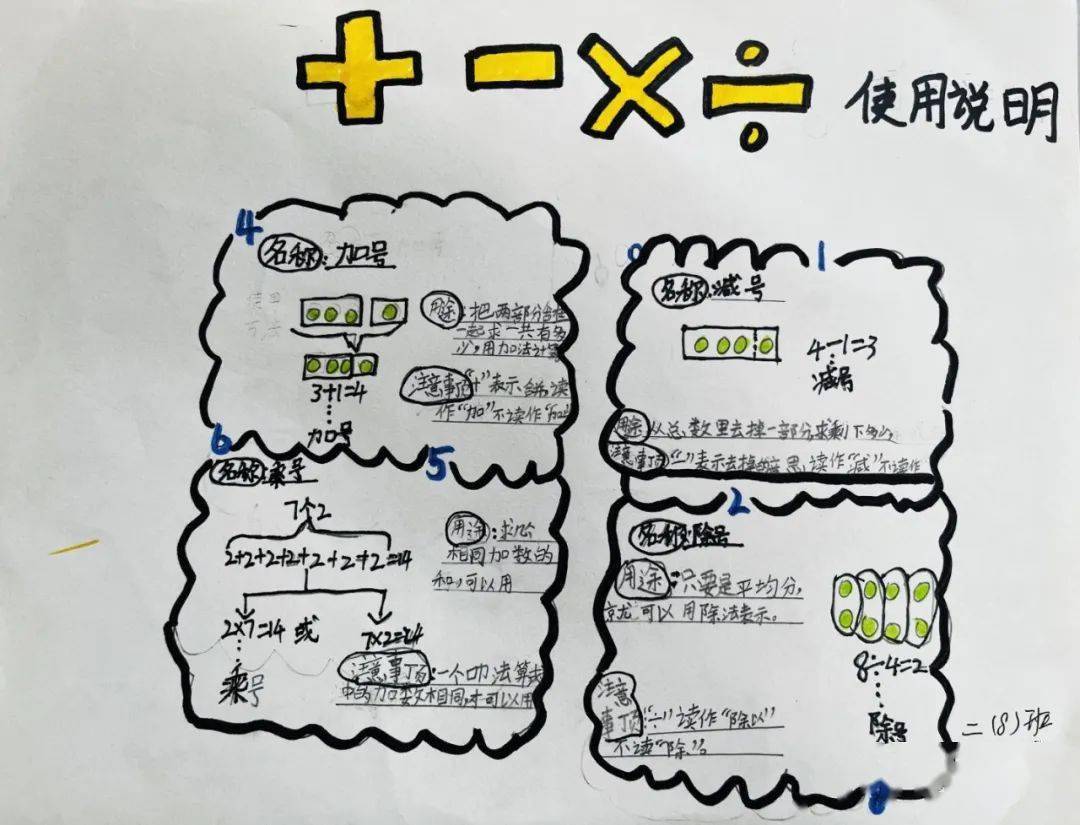 + − × ÷ 使用说明
4
名称:加号
用途:把两部分合在
一起求一共有多
少,用加法计算
3+1=4
加号
注意事项"+"表示合,读
作"加"不读作"加
0
1
名称:减号
4-1=3
减号
用途 从总数里去掉一部分求剩下多少,
注意事项"-"表示去掉的意思,读作"减"不读作
6
5
名称:乘号
7个2
2+2+2+2+2+2+2=14
2×7=14 或
7×2=14
乘号
用途:求几个
相同加数的
和,可以用
注意事项:一个加法算式
中的加数相同,才可以用
2
名称:除号
用途:只要是平均分,
就可以用除法表示。
8÷4=2
除号
注意
事项"÷"读作"除以"
不读"除"。
8
二(8)班